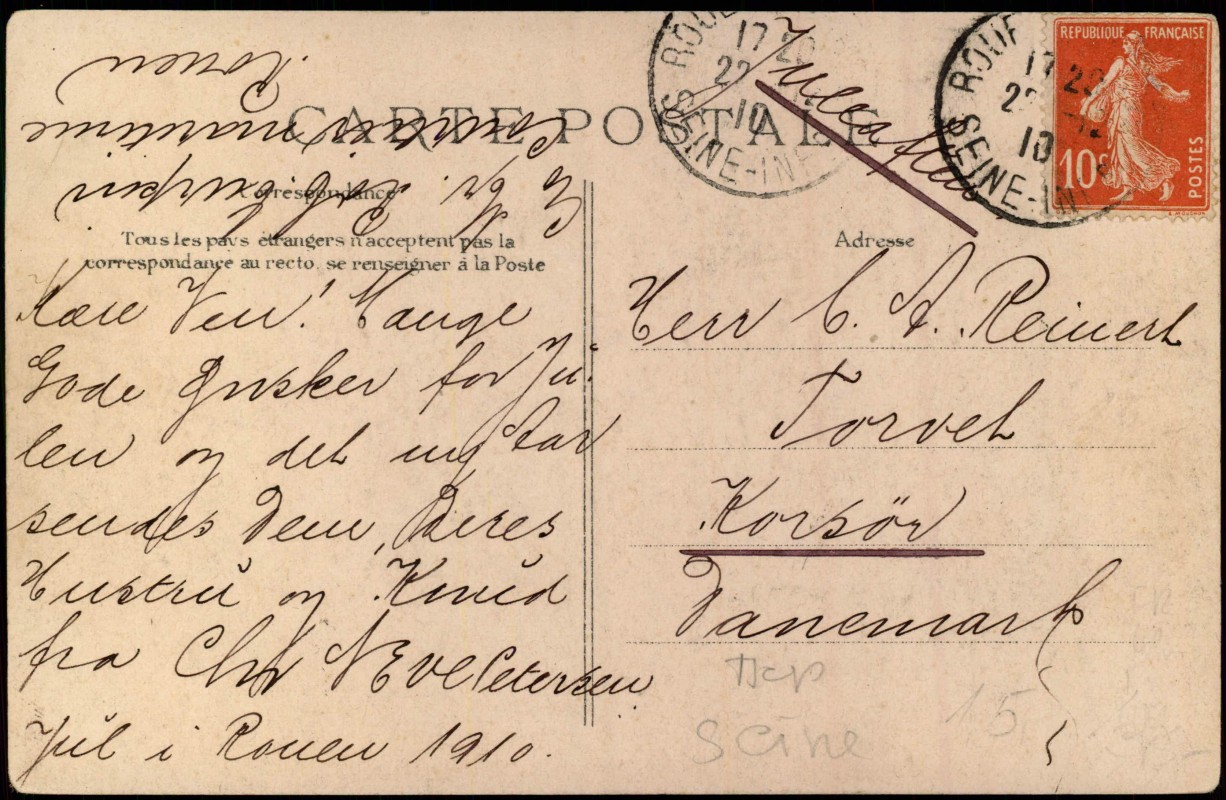 CARTE POSTALE
Correspondance
Tous les pays étrangers n'acceptent pas la
correspondance au recto, se renseigner à la Poste
Kære Ven! Mange
Gode Ønsker for Ju-
len og det ny Aar
sendes Dem, Deres
Hustru og Knud
fra Chr N Eve Petersen
Jul i Rouen 1910.
courtier maritime
Rouen
ROUEN
17 20
22
10
SEINE-INF
ROUEN
17 20
22 12
10
SEINE-INF
REPUBLIQUE FRANÇAISE
10c
POSTES
Adresse
Herr C. A. Reinert
Torvet
Korsör
Danemark
Dep
Seine
15